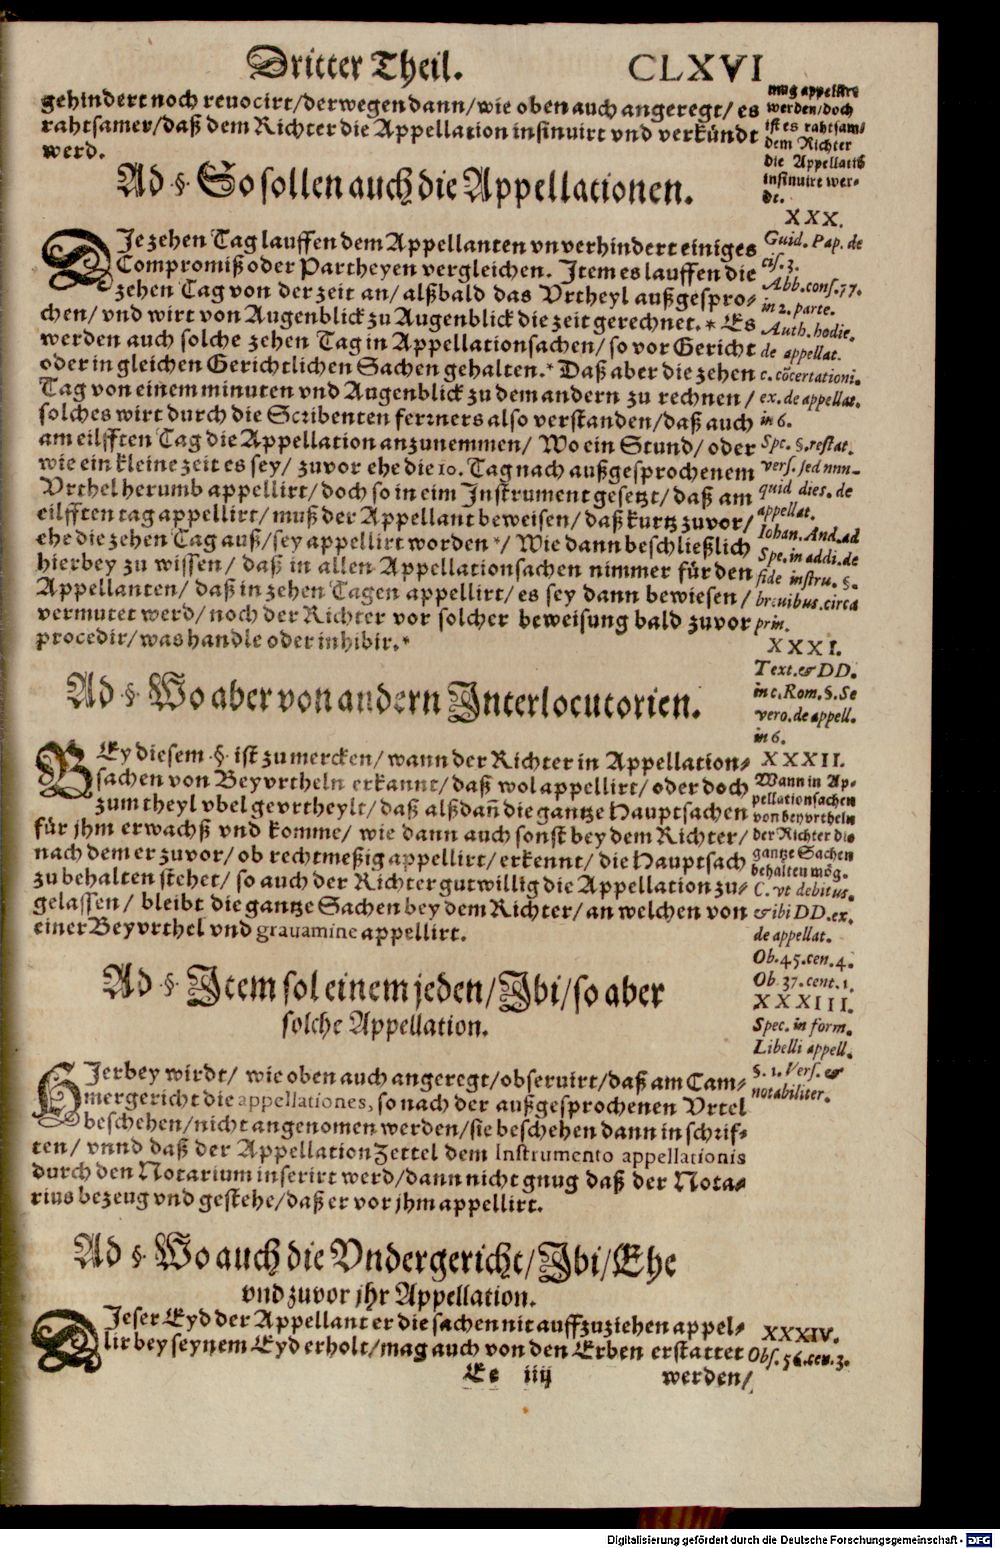 Dritter Theil. CLXVI
gehindert noch reuocirt/derwegen dann/wie oben auch angeregt/ es
rahtsamer/daß dem Richter die Appellation insinuirt vnd verkündt
werd.
mag appellirt
werden/doch
ist es rahtsam/
dem Richter
die Appellatiō
insinuirt wer-
de.
Ad §. So sollen auch die Appellationen.
DJe zehen Tag lauffen dem Appellanten vnverhindert einiges
Compromiß oder Partheyen vergleichen. Jtem es lauffen die
zehen Tag von der zeit an/ alßbald das Vrtheyl außgespro-
chen/ vnd wirt von Augenblick zu Augenblick die zeit gerechnet.* Es
werden auch solche zehen Tag in Appellationsachen/ so vor Gericht
oder in gleichen Gerichtlichen Sachen gehalten.* Daß aber die zehen
Tag von einem minuten vnd Augenblick zu dem andern zu rechnen/
solches wirt durch die Scribenten ferrners also verstanden/daß auch
am eilfften Tag die Appellation anzunemmen/ Wo ein Stund/ oder
wie ein kleine zeit es sey/ zuvor ehe die 10. Tag nach außgesprochenem
Vrthel herumb appellirt/ doch so in eim Instrument gesetzt/ daß am
eilfften tag appellirt/ muß der Appellant beweisen/ daß kurtz zuvor/
ehe die zehen Tag auß/sey appellirt worden*/ Wie dann beschließlich
hierbey zu wissen/ daß in allen Appellationsachen nimmer für den
Appellanten/ daß in zehen Tagen appellirt/ es sey dann bewiesen/
vermutet werd/ noch der Richter vor solcher beweisung bald zuvor
procedir/was handle oder inhibir.*
XXX.
Guid. Pap. de
cis. 3.
Abb. cons. 77.
in 2. parte.
Auth. hodie.
de appellat.
c. cōcertationi.
ex. de appellat.
in 6.
Spe. §. restat.
vers. sed nun-
quid dies. de
appellat.
Iohan. And. ad
Spe. in addi. de
fide instru. §.
breuibus. circa
prin.
XXXI.
Text. & DD.
in c. Rom. §. Se
vero. de appell.
in 6.
Ad §. Wo aber von andern Jnterlocutorien.
BEy diesem §. ist zu mercken/ wann der Richter in Appellation-
sachen von Beyvrtheln erkannt/ daß wol appellirt/ oder doch
zum theyl vbel gevrtheylt/ daß alßdañ die gantze Hauptsachen
für jhm erwachß vnd komme/ wie dann auch sonst bey dem Richter/
nach dem er zuvor/ ob rechtmeßig appellirt/ erkennt/ die Hauptsach
zu behalten stehet/ so auch der Richter gutwillig die Appellation zu-
gelassen/ bleibt die gantze Sachen bey dem Richter/ an welchen von
einer Beyvrthel vnd grauamine appellirt.
XXXII.
Wann in Ap-
pellationsachen
von beyvrtheln
der Richter die
gantze Sachen
behalten mög.
C. vt debitus.
& ibi DD. ex.
de appellat.
Ob. 45. cen. 4.
Ob. 37. cent. 1.
Ad §. Jtem sol einem jeden/Jbi/so aber
solche Appellation.
HJerbey wirdt/ wie oben auch angeregt/observirt/daß am Cam-
mergericht die appellationes, so nach der außgesprochenen Vrtel
beschehen/nicht angenomen werden/sie beschehen dann in schrif-
ten/ vnnd daß der Appellation Zettel dem Instrumento appellationis
durch den Notarium inserirt werd/dann nicht gnug daß der Nota-
rius bezeug vnd gestehe/daß er vor jhm appellirt.
XXXIII.
Spec. in form.
Libelli appell.
§. 1. Vers. &
notabiliter.
Ad §. Wo auch die Vndergericht/Jbi/Ehe
vnd zuvor jhr Appellation.
DJeser Eyd der Appellant er die sachen nit auffzuziehen appel-
lir bey seynem Eyd erholt/mag auch von den Erben erstattet
XXXIV.
Obs. 56. cen. 3.
Ee iiij werden/
Digitalisierung gefördert durch die Deutsche Forschungsgemeinschaft - DFG